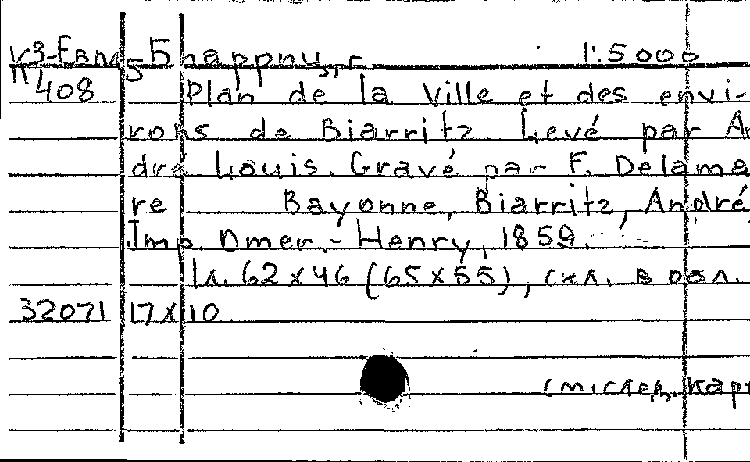 К3-Евр. Биарриц, г. 1:5000
408 Plan de la Ville et des envi-
rons de Biarritz Levé par An
dré Louis. Gravé par F. Delama
re Bayonne, Biarritz, André
Imp. Dmer.- Henry, 1859.
1л. 62 x 46 (65x55), скл. в обл.
32071 17x10